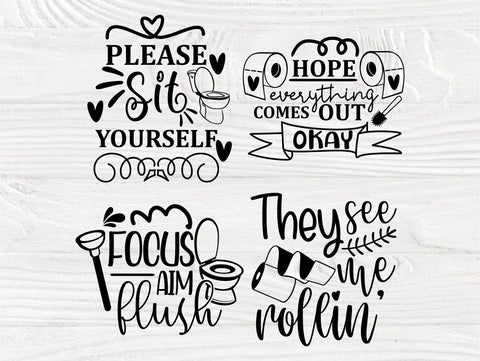 PLEASE
Sit
YOURSELF
HOPE
everything
COMES OUT
OKAY
FOCUS
AIM
flush
They see
me
rollin'